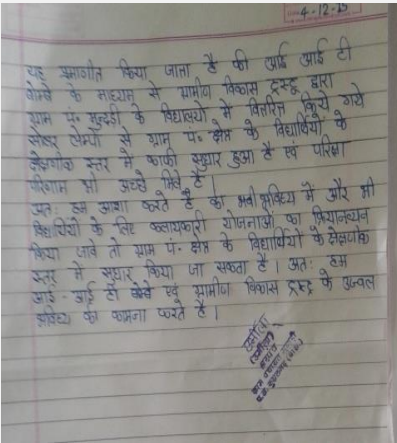 4-12-15
यह प्रमाणीत किया जाता है की आई आई टी
बोम्बे के माध्यम से ग्रामीण विकास ट्रस्ट द्वारा
ग्राम पं॰ मुन्दडी के विद्यालयो में वितरित किये गये
सोलर लेम्पो से ग्राम पं॰ क्षेत्र के विद्यार्थियो के
शैक्षणीक स्तर में काफी सुधार हुआ है एवं परिक्षा
परिणाम भी अच्छे मिले है।
अतः हम आशा करते है की भावी भविष्य में और भी
विद्यार्थियो के लिए कल्याणकारी योजनाओ का क्रियानवयन
किया जावे तो ग्राम पं॰ क्षेत्र के विद्यार्थियो के शैक्षणीक
स्तर में सुधार किया जा सकता है। अतः हम
आई-आई टी बोम्बे एवं ग्रामीण विकास ट्रस्ट के उज्वल
भविष्य की कामना करते है।
उर्मीला
(उर्मीला)
सरपंच
ग्राम पंचायत